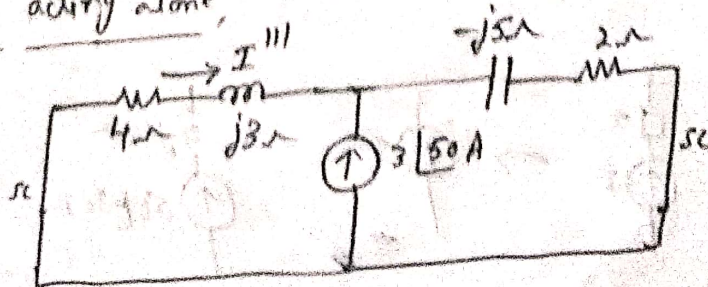 acting alone,
I'''
-j5Ω 2Ω
4Ω j3Ω
3∠50 A
sc
sc